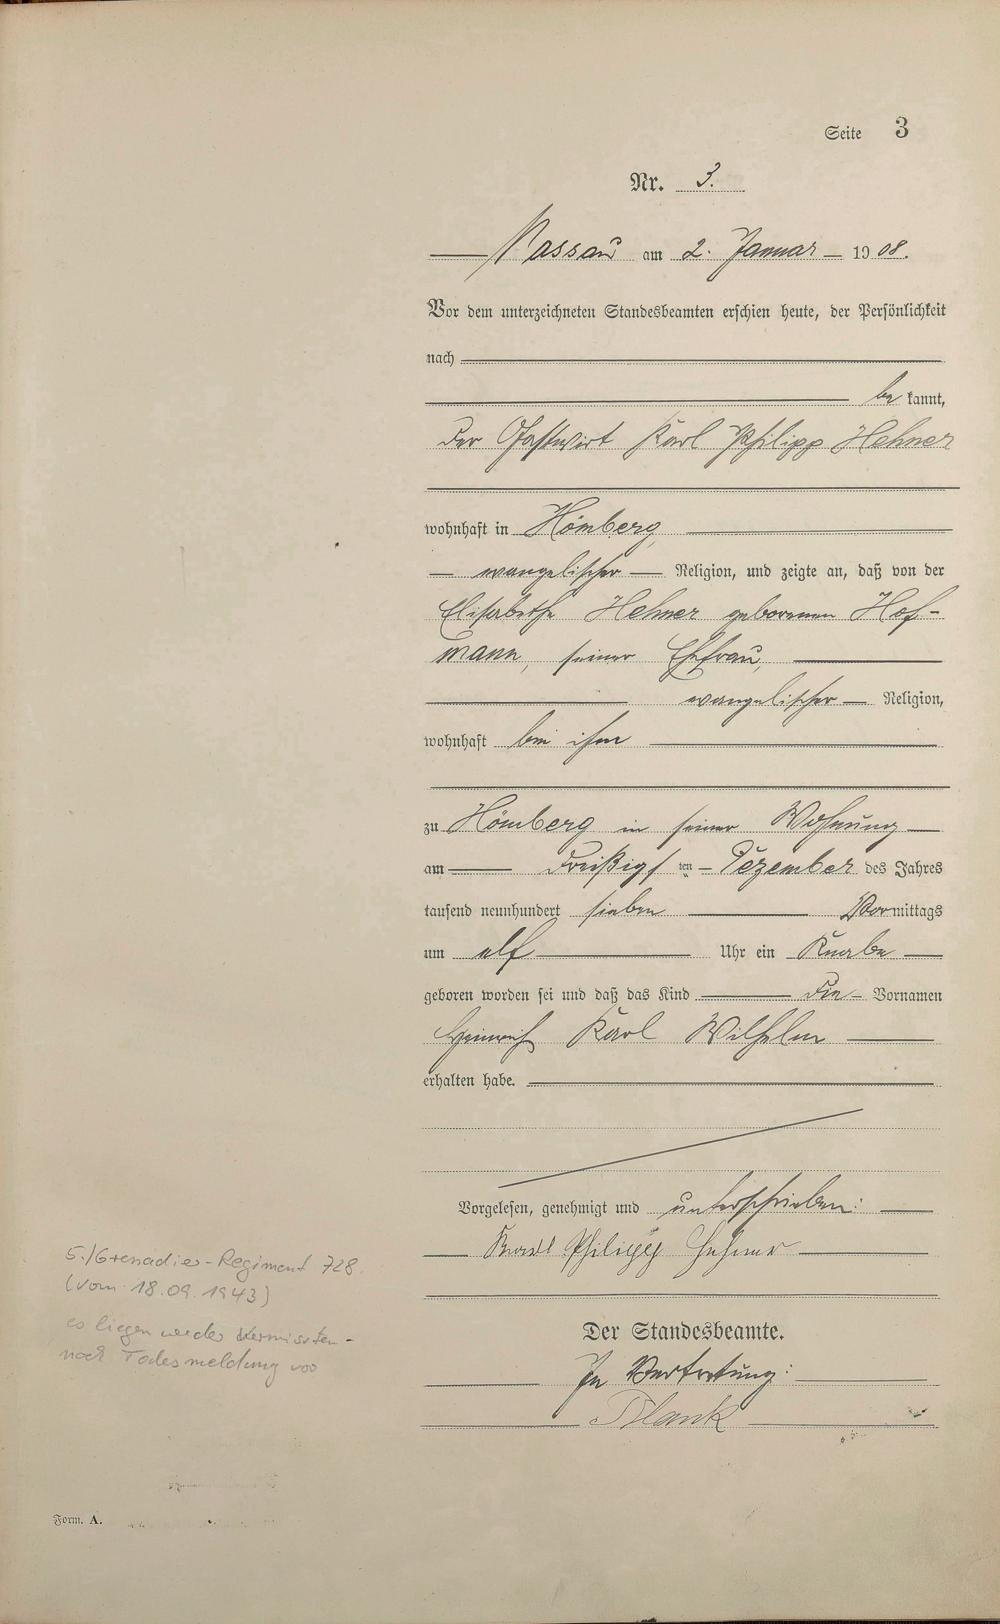 Seite 3
Nr. 3.
Nassau am 2. Januar 1908.
Vor dem unterzeichneten Standesbeamten erschien heute, der Persönlichkeit
nach
bekannt,
der Gastwirt Karl Philipp Hehner
wohnhaft in Hömberg,
evangelischer Religion, und zeigte an, daß von der
Elisabethe Hehner geborenen Hof-
mann, seiner Ehefrau,
evangelischer Religion,
wohnhaft bei ihm
zu Hömberg in seiner Wohnung
am dreißigsten Dezember des Jahres
tausend neunhundert sieben Vormittags
um elf Uhr ein Knabe
geboren worden sei und daß das Kind die Vornamen
Heinrich Karl Wilhelm
erhalten habe.
Vorgelesen, genehmigt und unterschrieben:
Karl Philipp Hehner
Der Standesbeamte.
In Vertretung:
Blank
5./Grenadier-Regiment 728.
(vom 18.09.1943)
es liegen weder Vermissten-
noch Todesmeldung vor
Form. A.